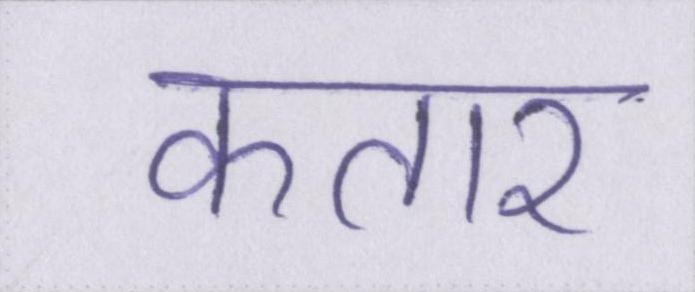 कतार